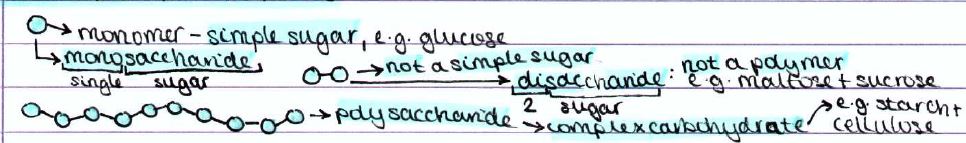 monomer - simple sugar, e.g. glucose
monosaccharide
single sugar
not a simple sugar
disaccharide: not a polymer
e.g. maltose + sucrose
2 sugar
polysaccharide
complex carbohydrate
e.g. starch +
cellulose